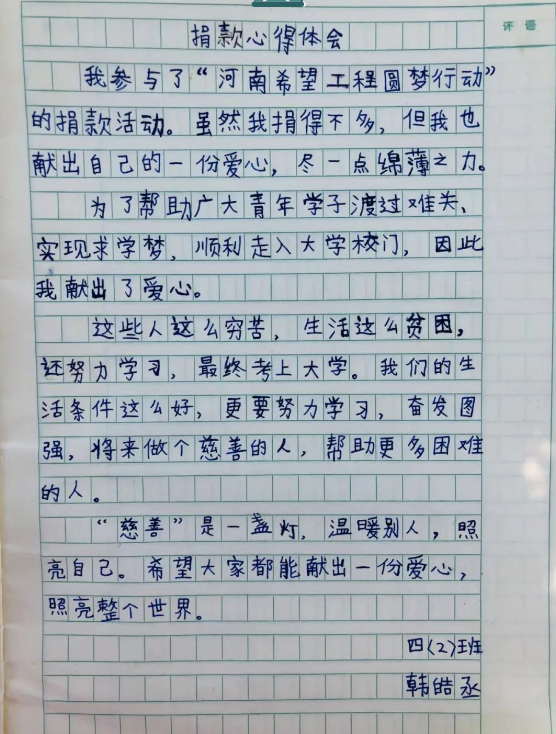 评语
捐款心得体会
我参与了“河南希望工程圆梦行动”
的捐款活动。虽然我捐得不多，但我也
献出自己的一份爱心，尽一点绵薄之力。
为了帮助广大青年学子渡过难关、
实现求学梦，顺利走入大学校门，因此
我献出了爱心。
这些人这么穷苦，生活这么贫困，
还努力学习，最终考上大学。我们的生
活条件这么好，更要努力学习，奋发图
强，将来做个慈善的人，帮助更多困难
的人。
“慈善”是一盏灯，温暖别人，照
亮自己。希望大家都能献出一份爱心，
照亮整个世界。
四（2）班
韩皓丞